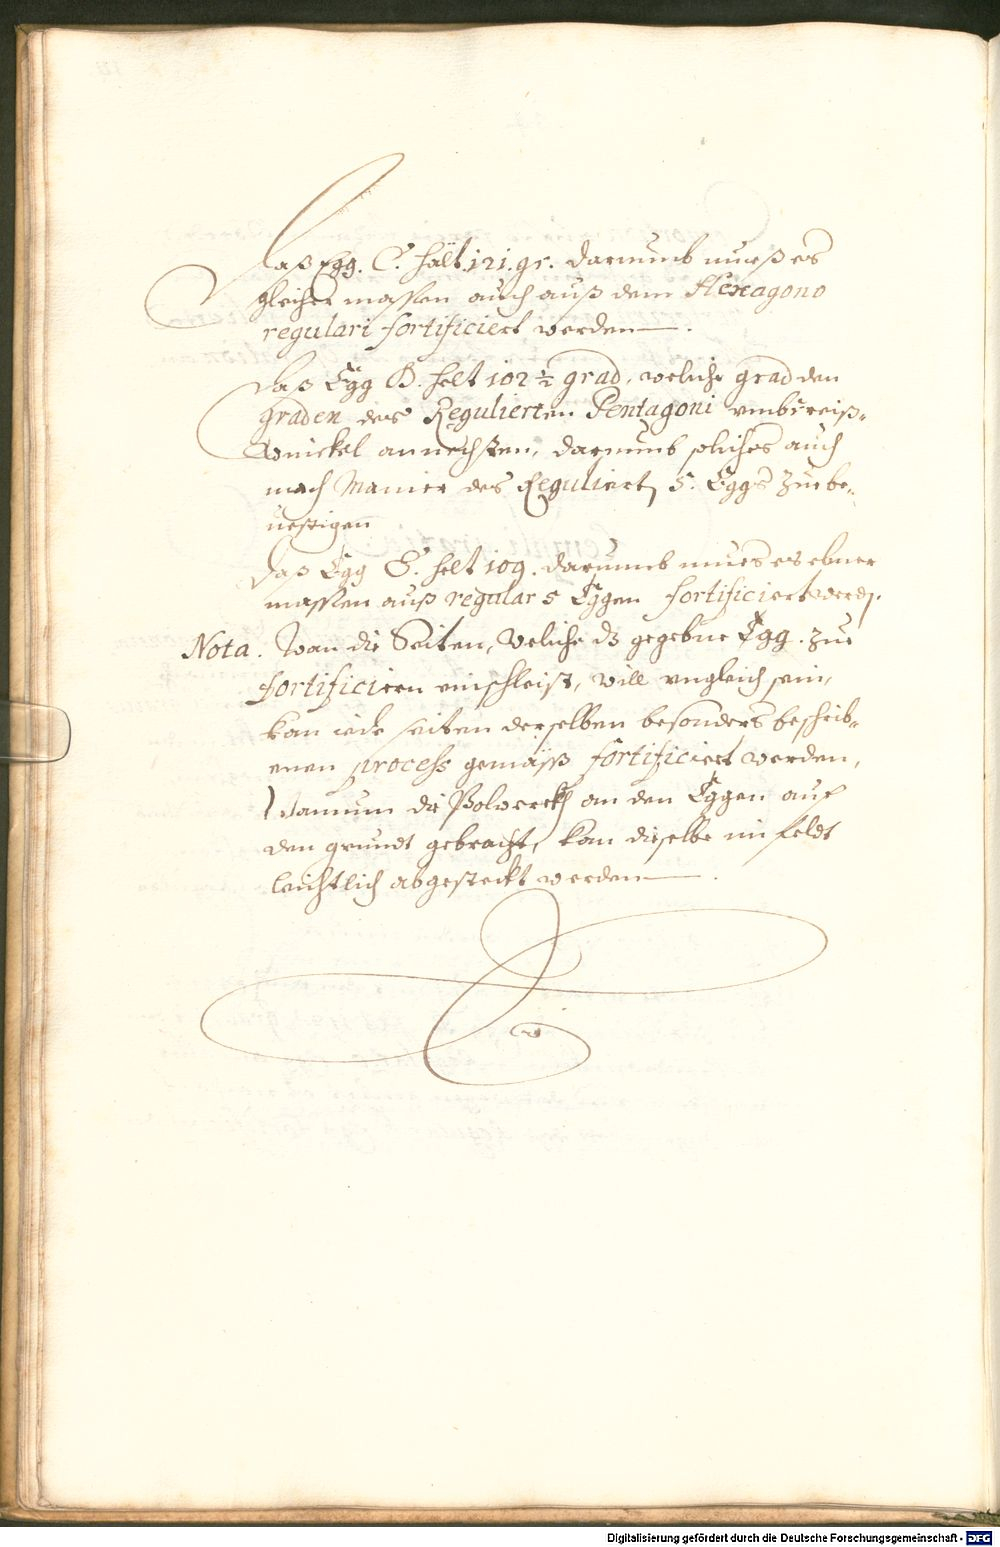 Daß Egg. C. hält. 121. gr. darumb mueß es
gleicher massen auch auß dem Hexagono
regulari fortificiert werden.
Daß Egg D. helt 102 ½ grad, weliche grad den
graden des Regulierten Pentagoni vmbkreiß-
winckel am nechsten, darumb soliches auch
nach Manier des Reguliert 5. Eggs zue be-
uestigen
Daß Egg E. helt 109. darumb mues es ebner
massen auß regular 5 Eggen fortificiert werdē.
Nota. Wan die Seiten, weliche dz gegebne Egg. zue
fortificiern einschleist, vill vngleich sein,
kan iede seiten derselben besonders beschrib-
enen process gemäß fortificiert werden,
Wannun die Polwerckh an den Eggen auf
den grundt gebracht, kan dieselbe im feldt
leichtlich abgesteckt werden.
Digitalisierung gefördert durch die Deutsche Forschungsgemeinschaft - DFG